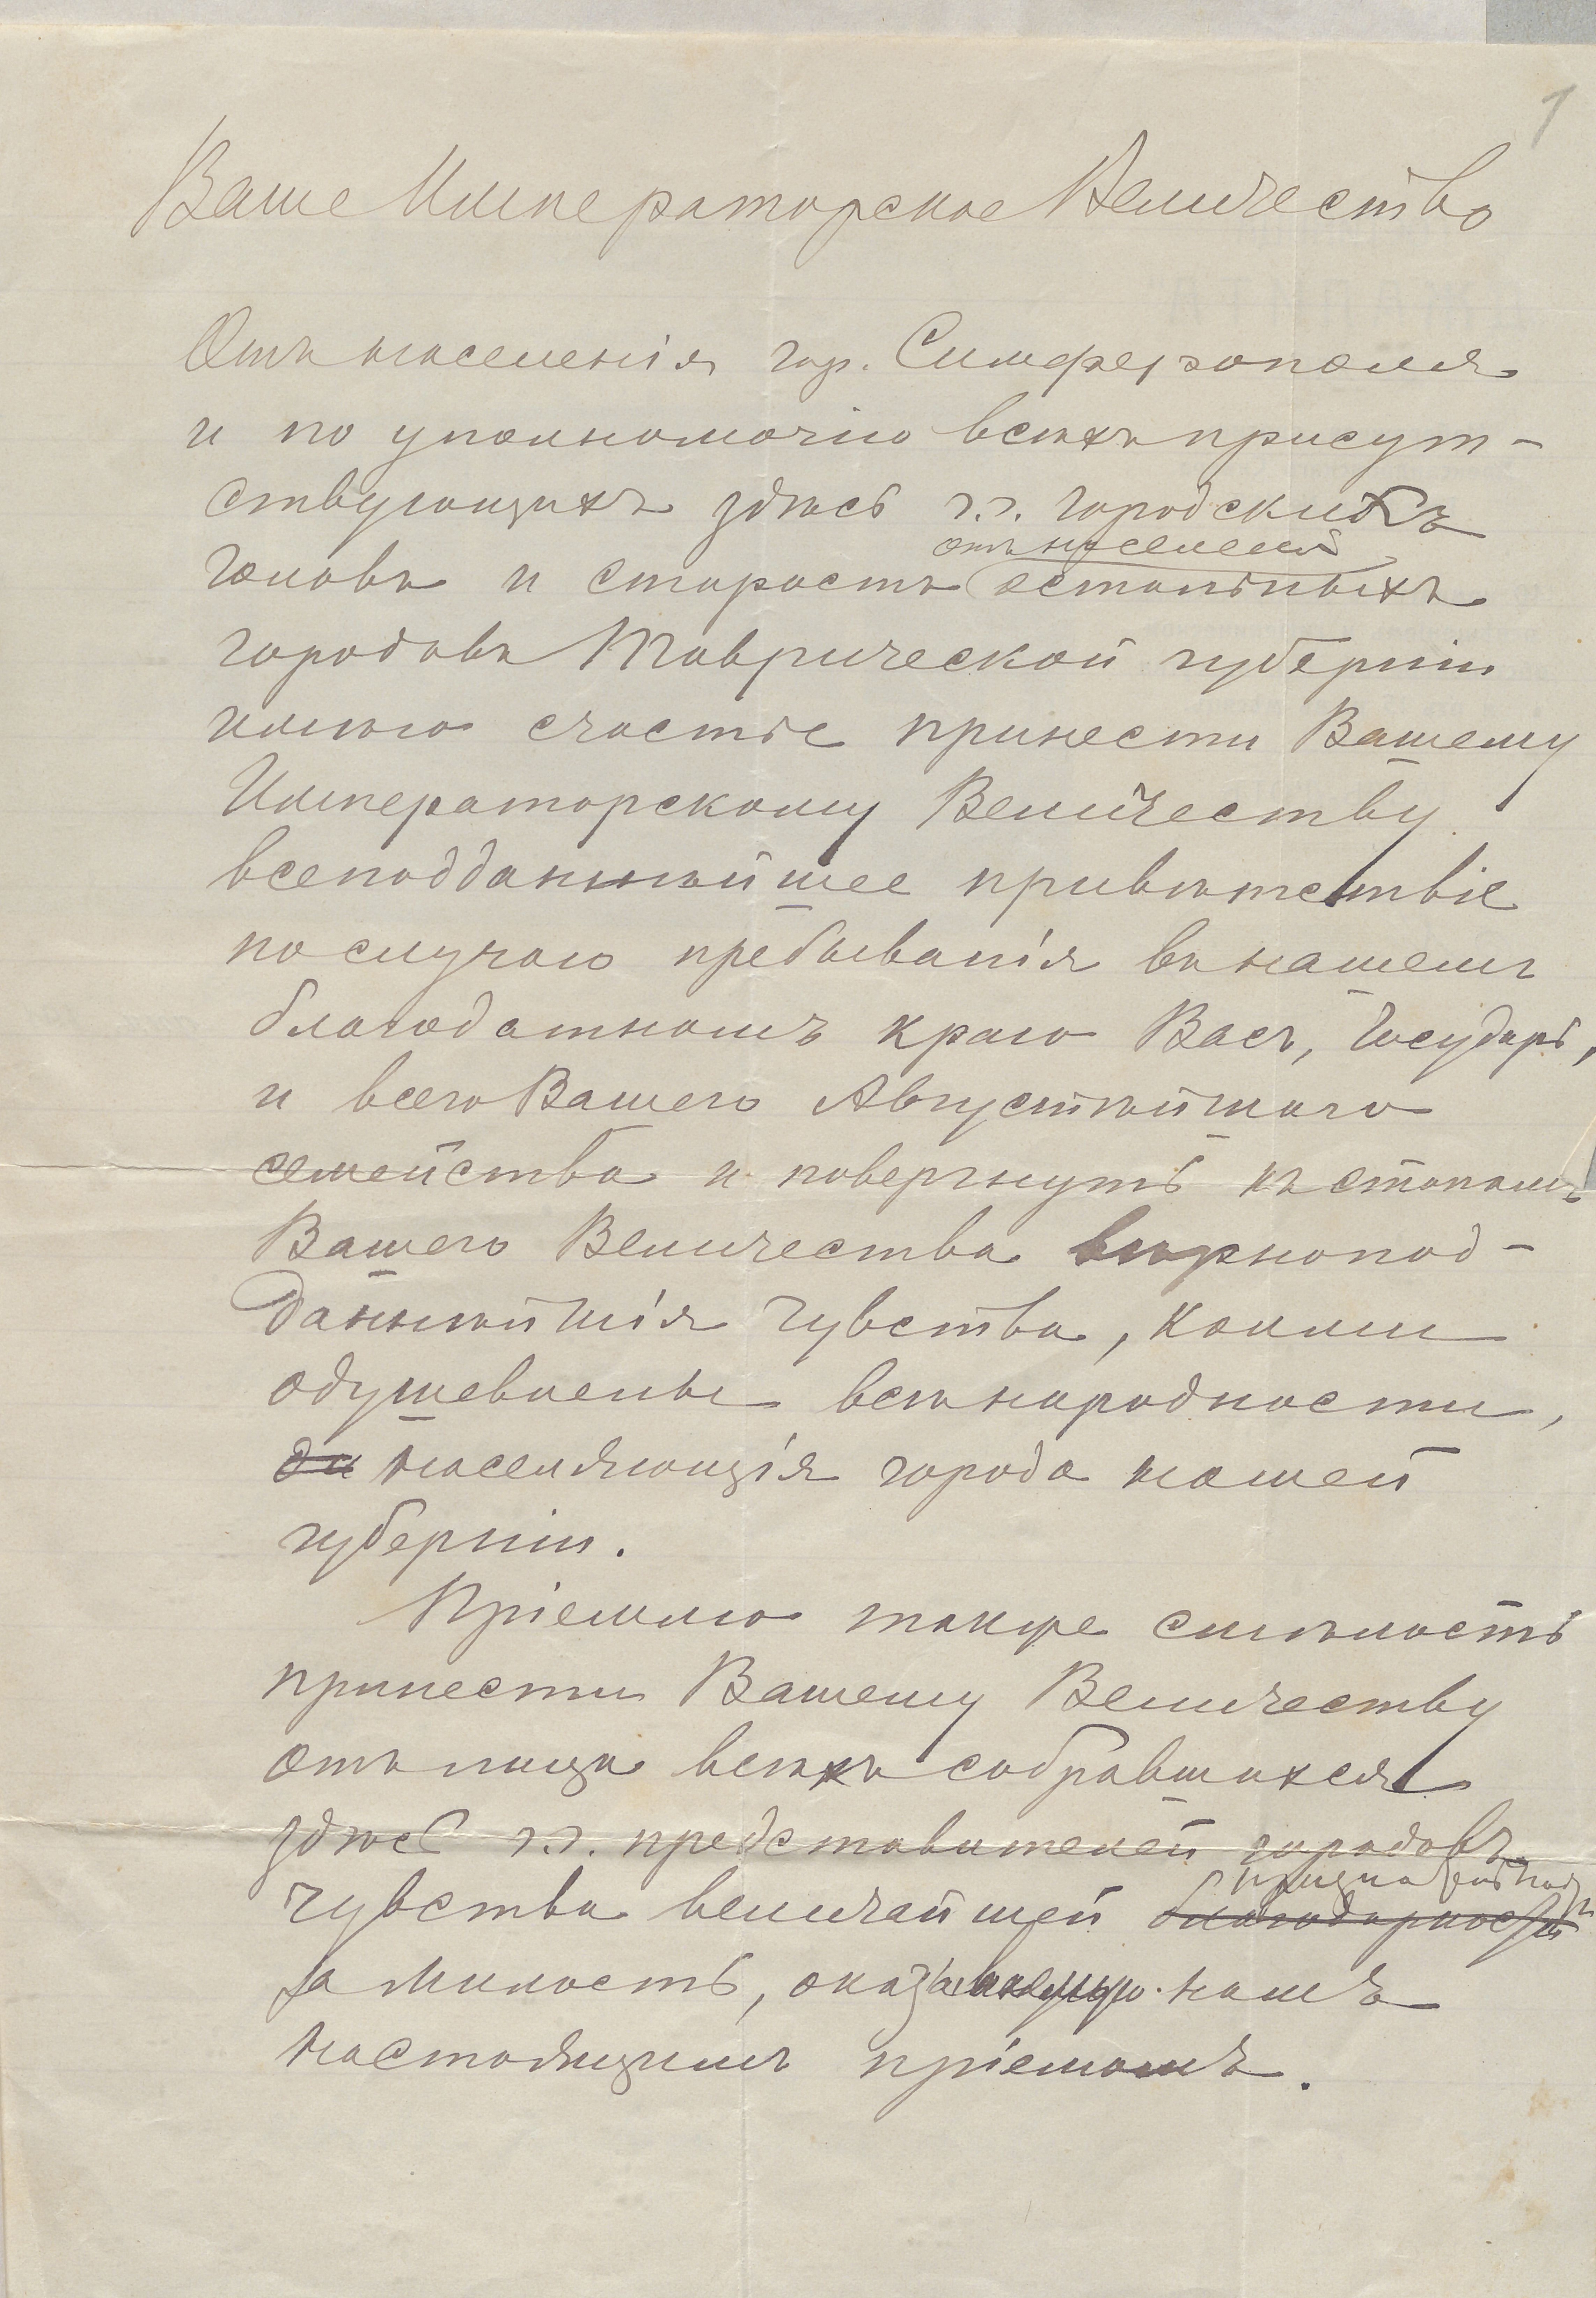 1
Ваше Императорское Величество
Отъ населенія гор. Симферополя
и по уполномочію всѣхъ присут-
ствующихъ здѣсь г.г. городскихъ
отъ населенія
головъ и старостъ остальныхъ
городовъ Таврической губерніи
имѣю счастіе принести Вашему
Императорскому Величеству
всеподданнѣйшее привѣтствіе
по случаю пребыванія въ нашемъ
благодатномъ краю Васъ, Государь,
и всего Вашего Августѣйшаго
семейства и повергнуть къ стопамъ
Вашего Величества вѣрнопод-
даннѣйшія чувства, коими
одушевлены всѣ народности,
населяющія города нашей
губерніи.
Пріемлю также смѣлость
принести Вашему Величеству
отъ лица всѣхъ собравшихся
здѣсь г.г. представителей городовъ
признательности
чувства величайшей благодарности
за милость, оказанную намъ
настоящимъ пріемомъ.